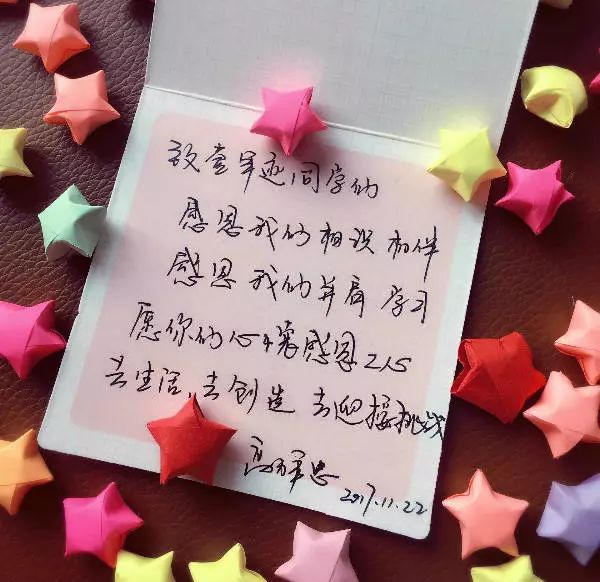 致 同学们
感恩我们相识相伴
感恩我们并肩学习
愿你们心怀感恩之心
去生活,去创造 去迎接挑战
2017.11.22